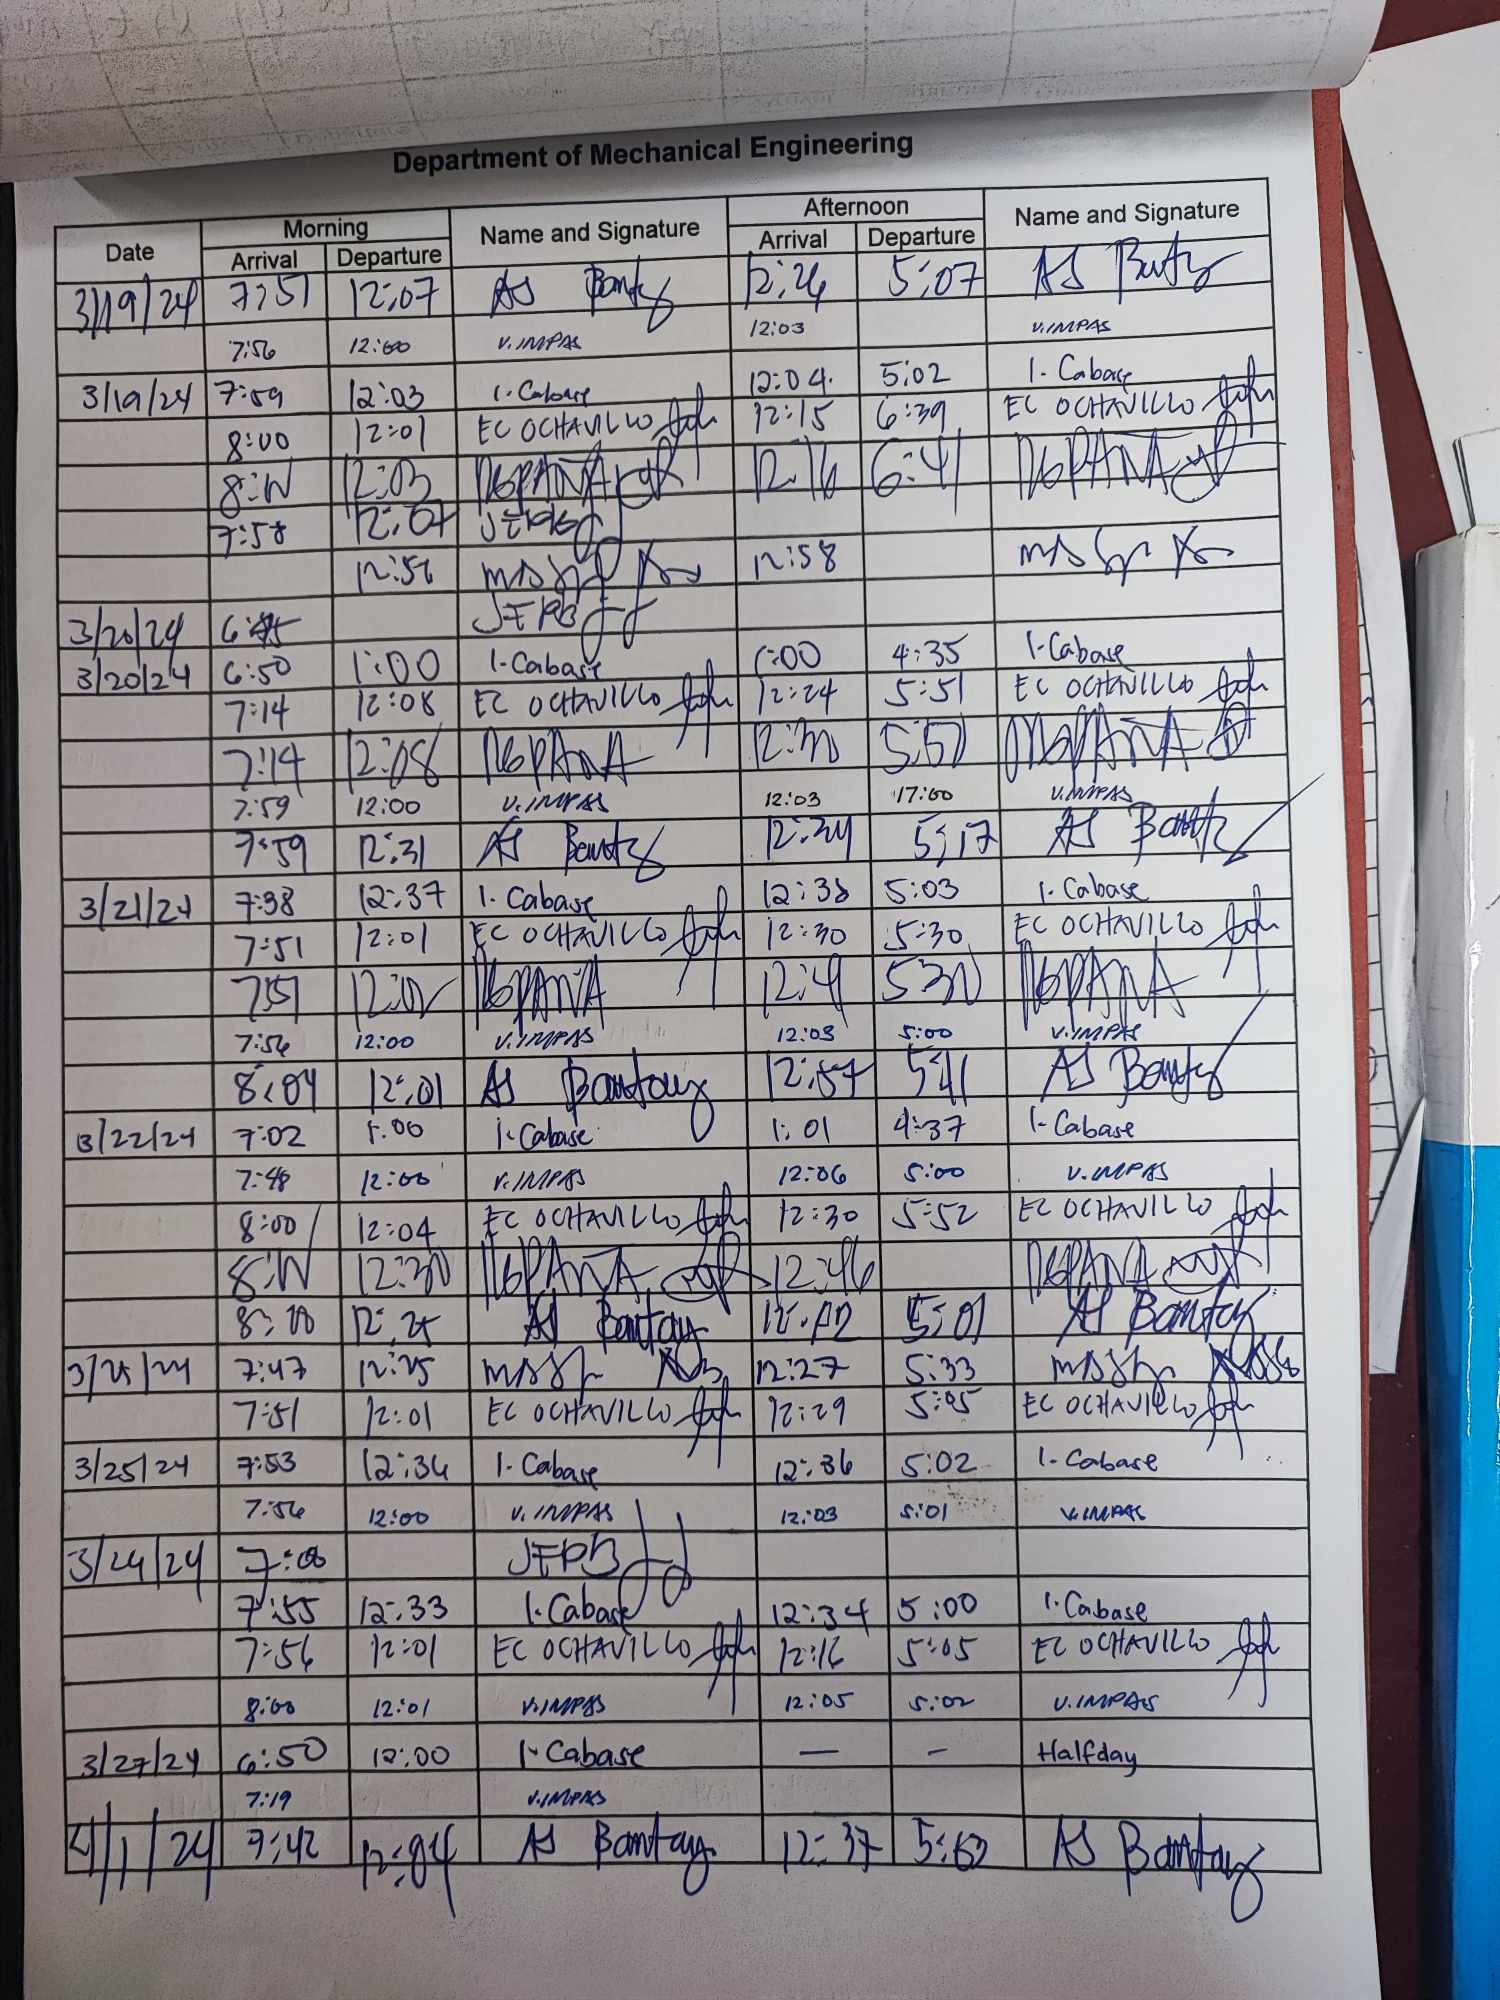 Department of Mechanical Engineering
Date Morning Name and Signature Afternoon Name and Signature
Arrival Departure Arrival Departure
3/19/24 7:51 12:07 AS 12:26 5:07 AS
7:56 12:00 V. IMPAS 12:03 V. IMPAS
3/19/24 7:59 12:03 I. Cabase 12:04 5:02 I. Cabase
8:00 12:01 EC OCHAVILLO 12:15 6:39 EC OCHAVILLO
12:03 NGPANA 12:16 6:41 NGPANA
7:58 12:07 JFPB
12:56 12:58
3/20/24 JFPB
3/20/24 6:50 1:00 I. Cabase 1:00 4:35 I. Cabase
7:14 12:08 EC OCHAVILLO 12:24 5:51 EC OCHAVILLO
7:14 12:08 NGPANA 12:30 5:51 NGPANA
7:59 12:00 V. IMPAS 12:03 17:00 V. IMPAS
7:59 12:31 AS 12:34 5:17 AS
3/21/24 7:38 12:37 I. Cabase 12:38 5:03 I. Cabase
7:51 12:01 EC OCHAVILLO 12:30 5:30 EC OCHAVILLO
7:51 NGPANA 12:41 530 NGPANA
7:56 12:00 V. IMPAS 12:03 5:00 V. IMPAS
8:04 12:01 AS Bantay 12:57 5:41 AS
3/22/24 7:02 1:00 I. Cabase 1:01 4:37 I. Cabase
7:48 12:00 V. IMPAS 12:06 5:00 V. IMPAS
8:00 12:04 EC OCHAVILLO 12:30 5:52 EC OCHAVILLO
12:30 NGPANA 12:46 NGPANA
12:25 AS Bantay 5:01 AS Bantay
3/25/24 7:47 12:25 12:27 5:33
7:51 12:01 EC OCHAVILLO 12:29 5:05 EC OCHAVILLO
3/25/24 7:53 12:36 I. Cabase 12:36 5:02 I. Cabase
7:56 12:00 V. IMPAS 12:03 5:01 V. IMPAS
7:00 JFPB
7:55 12:33 I. Cabase 12:34 5:00 I. Cabase
7:56 12:01 EC OCHAVILLO 12:16 5:05 EC OCHAVILLO
8:00 12:01 V. IMPAS 12:05 5:02 V. IMPAS
3/27/24 6:50 12:00 I. Cabase — — Halfday
7:19 V. IMPAS
4/1/24 7:42 12:04 AS Bantay 12:37 AS Bantay